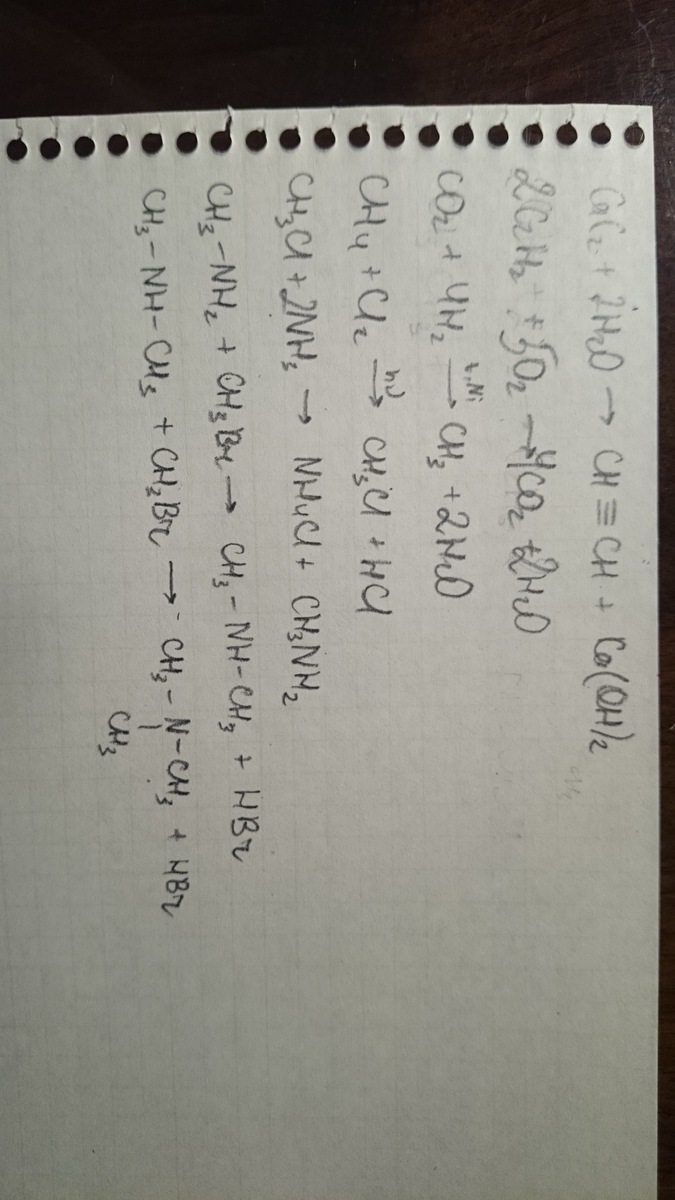 CaC₂ + 2H₂O → CH ≡ CH + Ca(OH)₂
2C₂H₂ + 5O₂ → 4CO₂ + 2H₂O
CO₂ + 4H₂ →(t, Ni) CH₃ + 2H₂O
CH₄ + Cl₂ →(hν) CH₃Cl + HCl
CH₃Cl + 2NH₃ → NH₄Cl + CH₃NH₂
CH₃ – NH₂ + CH₃Br → CH₃ – NH – CH₃ + HBr
CH₃ – NH – CH₃ + CH₃Br → CH₃ – N – CH₃ + HBr
CH₃